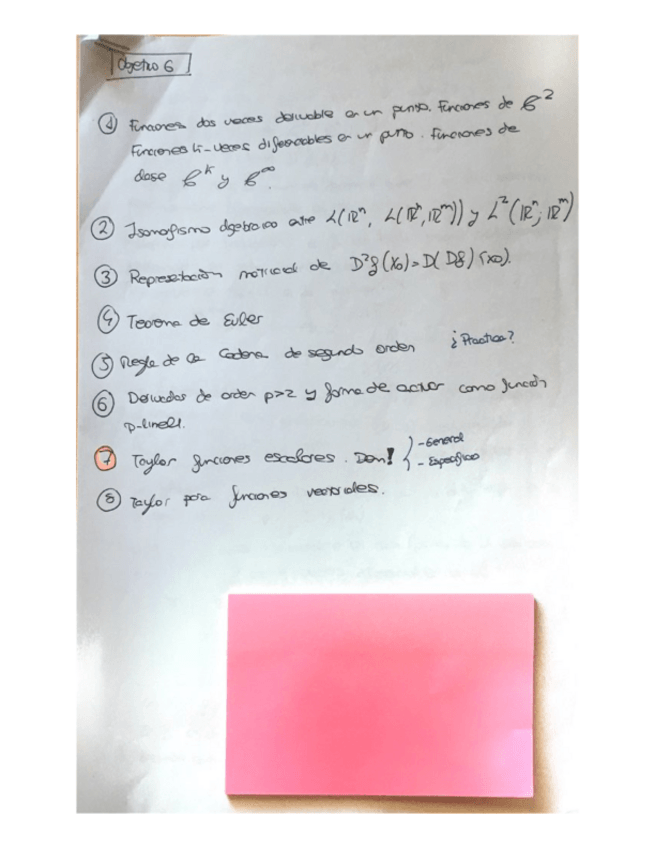 Objetivo 6
① Funciones dos veces derivable en un punto. Funciones de 𝒞²
Funciones k-veces diferenciables en un punto. Funciones de
clase 𝒞ᵏ y 𝒞^∞.
② Isomorfismo algebraico entre L(ℝⁿ, L(ℝⁿ, ℝᵐ)) y L²(ℝⁿ; ℝᵐ)
③ Representación matricial de D²f(x₀) = D(Df)(x₀).
④ Teorema de Euler
⑤ Regla de la Cadena de segundo orden ¿Practica?
⑥ Derivadas de orden p>2 y forma de actuar como función
p-lineal.
⑦ Taylor funciones escalares. Dem! - General
- Específico
⑧ Taylor para funciones vectoriales.